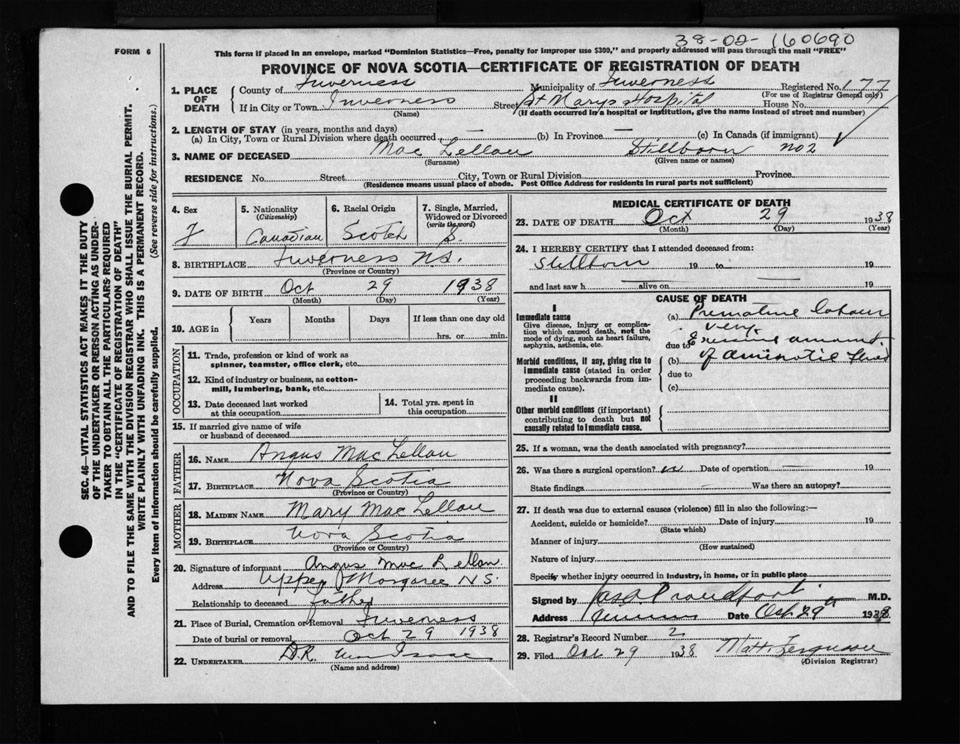 38-02-160690
FORM 6
This form if placed in an envelope, marked "Dominion Statistics—Free, penalty for improper use $300," and properly addressed will pass through the mail "FREE"
PROVINCE OF NOVA SCOTIA—CERTIFICATE OF REGISTRATION OF DEATH
1. PLACE OF DEATH County of Inverness Municipality of Inverness Registered No. 177
(For use of Registrar General only)
If in City or Town Inverness Street St Marys Hospital House No.
(Name) (If death occurred in a hospital or institution, give the name instead of street and number)
2. LENGTH OF STAY (in years, months and days)
(a) In City, Town or Rural Division where death occurred — (b) In Province — (c) In Canada (if immigrant)
3. NAME OF DECEASED Mac Lellan Stillborn no 2
(Surname) (Given name or names)
RESIDENCE No. Street City, Town or Rural Division Province
(Residence means usual place of abode. Post Office Address for residents in rural parts not sufficient)
4. Sex F
5. Nationality (Citizenship) Canadian
6. Racial Origin Scotch
7. Single, Married, Widowed or Divorced (write the word) S.
8. BIRTHPLACE Inverness N.S.
(Province or Country)
9. DATE OF BIRTH Oct 29 1938
(Month) (Day) (Year)
10. AGE in Years Months Days If less than one day old
hrs. or min.
OCCUPATION
11. Trade, profession or kind of work as spinner, teamster, office clerk, etc.
12. Kind of industry or business, as cotton-mill, lumbering, bank, etc.
13. Date deceased last worked at this occupation
14. Total yrs. spent in this occupation
15. If married give name of wife or husband of deceased
FATHER
16. NAME Angus Mac Lellan
17. BIRTHPLACE Nova Scotia
(Province or Country)
MOTHER
18. MAIDEN NAME Mary Mac Lellan
19. BIRTHPLACE Nova Scotia
(Province or Country)
20. Signature of informant Angus Mac Lellan
Address Upper Margaree N.S.
Relationship to deceased father
21. Place of Burial, Cremation or Removal Inverness
Date of burial or removal Oct 29 1938
22. UNDERTAKER D.R.
(Name and address)
MEDICAL CERTIFICATE OF DEATH
23. DATE OF DEATH Oct 29 1938
(Month) (Day) (Year)
24. I HEREBY CERTIFY that I attended deceased from:
Stillborn 19 to 19
and last saw h — alive on — 19
CAUSE OF DEATH
I
Immediate cause
Give disease, injury or complication which caused death, not the mode of dying, such as heart failure, asphyxia, asthenia, etc.
(a) Premature labour
very
due to amount
Morbid conditions, if any, giving rise to immediate cause (stated in order proceeding backwards from immediate cause).
(b) of
due to
(c)
II
Other morbid conditions (if important) contributing to death but not causally related to immediate cause.
25. If a woman, was the death associated with pregnancy?
26. Was there a surgical operation? no Date of operation — 19
State findings — Was there an autopsy?
27. If death was due to external causes (violence) fill in also the following:—
Accident, suicide or homicide? Date of injury 19
(State which)
Manner of injury
(How sustained)
Nature of injury
Specify whether injury occurred in industry, in home, or in public place
Signed by Jas. A. Proudfoot M.D.
Address Inverness Date Oct. 29th 1938
28. Registrar's Record Number 2
29. Filed Oct 29 1938 Matt Ferguson
(Division Registrar)
SEC. 46—VITAL STATISTICS ACT MAKES IT THE DUTY
OF THE UNDERTAKER OR PERSON ACTING AS UNDER-
TAKER TO OBTAIN ALL THE PARTICULARS REQUIRED
IN THE "CERTIFICATE OF REGISTRATION OF DEATH"
AND TO FILE THE SAME WITH THE DIVISION REGISTRAR WHO SHALL ISSUE THE BURIAL PERMIT.
WRITE PLAINLY WITH UNFADING INK. THIS IS A PERMANENT RECORD.
Every item of information should be carefully supplied. (See reverse side for instructions.)